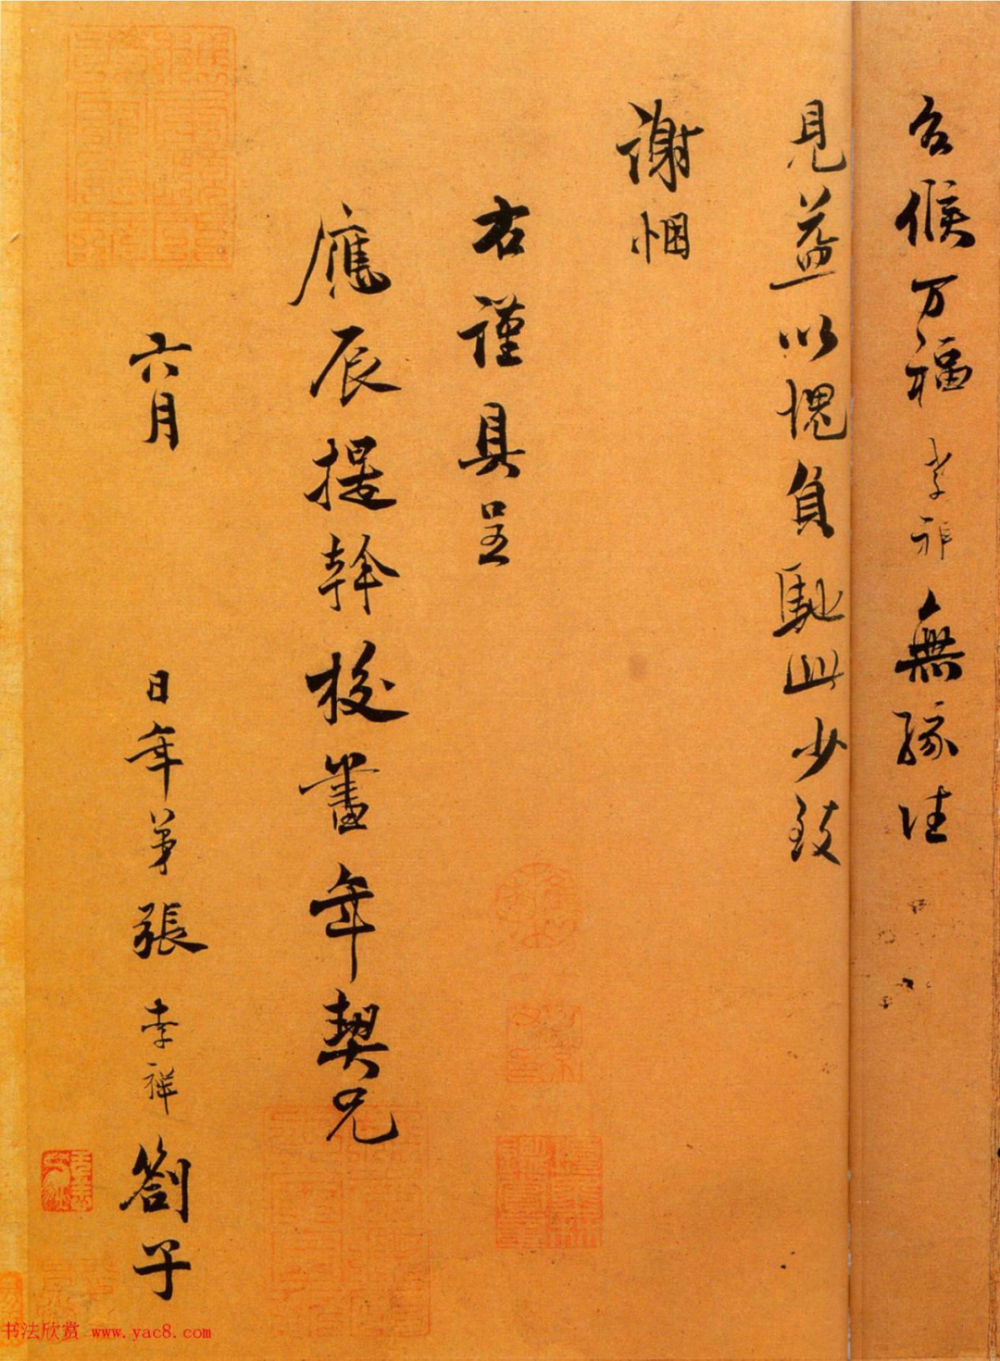 台候万福孝祥無緣往
見益以愧負馳此少致
謝悃
右謹具呈
應辰提幹校書年契兄
六月 日年弟張孝祥劄子
书法欣赏 www.yac8.com